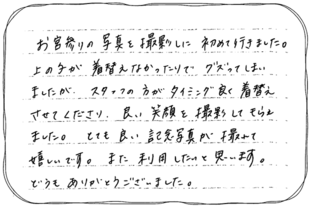 お宮参りの写真を撮影しに初めて行きました。
上の子が着替えなかったりでグズってしまい
ましたが、スタッフの方がタイミング良く着替え
させてくださり、良い笑顔を撮影してもらえ
ました。とても良い記念写真が撮れて
嬉しいです。また利用したいと思います。
どうもありがとうございました。